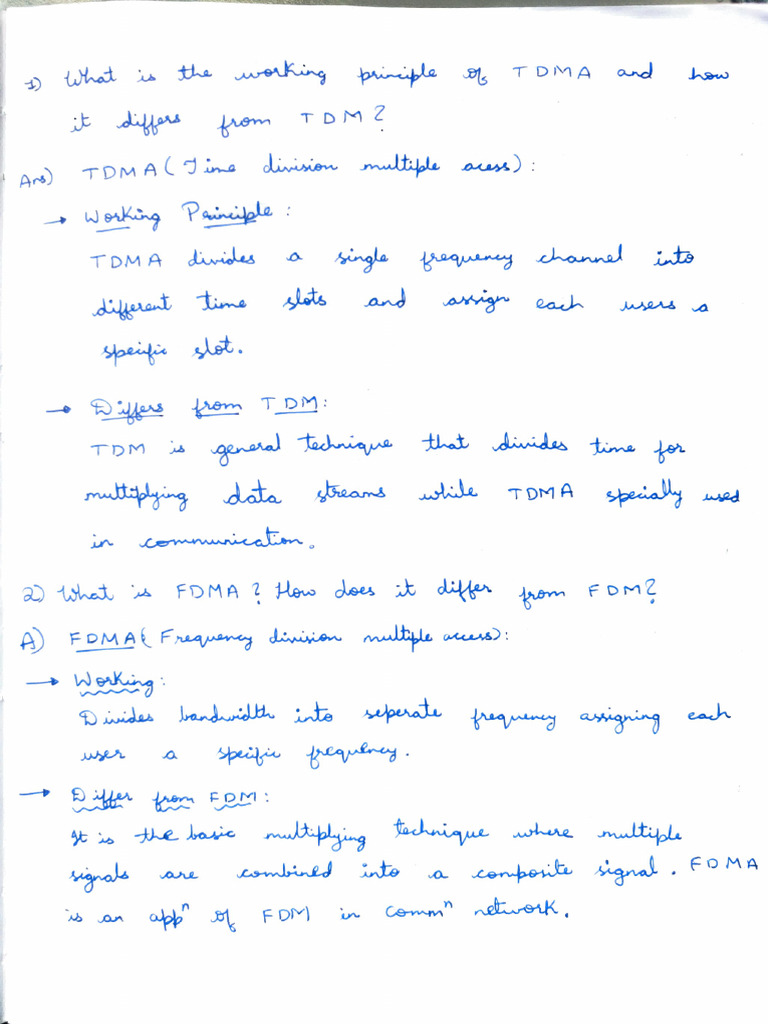 1) What is the working principle of TDMA and how
it differs from TDM?
Ans) TDMA (Time division multiple acess):
→ Working Principle:
TDMA divides a single frequency channel into
different time slots and assign each users a
specific slot.
→ Differs from TDM:
TDM is general technique that divides time for
multiplying data streams while TDMA specially used
in communication.
2) What is FDMA? How does it differ from FDM?
A) FDMA (Frequency division multiple access):
→ Working:
Divides bandwidth into seperate frequency assigning each
user a specific frequency.
→ Differ from FDM:
It is the basic multiplying technique where multiple
signals are combined into a composite signal. FDMA
is an appⁿ of FDM in commⁿ network.